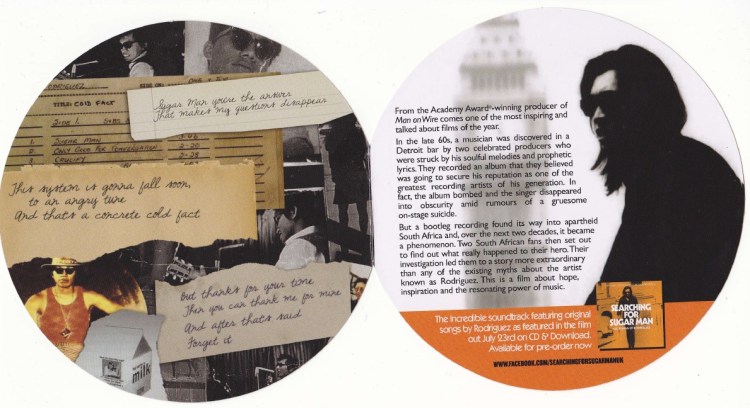 RODRIGUEZ
TITLE: COLD FACT
SIDE 1
1. SUGAR MAN
2. ONLY GOOD FOR CONVERSATION 2-20
Sugar Man you're the answer
That makes my questions disappear
This system is gonna fall soon,
to an angry tune
And that's a concrete cold fact
But thanks for your time
Then you can thank me for mine
And after that's said
Forget it
milk
From the Academy Award®-winning producer of
Man on Wire comes one of the most inspiring and
talked about films of the year.
In the late 60s, a musician was discovered in a
Detroit bar by two celebrated producers who
were struck by his soulful melodies and prophetic
lyrics. They recorded an album that they believed
was going to secure his reputation as one of the
greatest recording artists of his generation. In
fact, the album bombed and the singer disappeared
into obscurity amid rumours of a gruesome
on-stage suicide.
But a bootleg recording found its way into apartheid
South Africa and, over the next two decades, it became
a phenomenon. Two South African fans then set out
to find out what really happened to their hero. Their
investigation led them to a story more extraordinary
than any of the existing myths about the artist
known as Rodriguez. This is a film about hope,
inspiration and the resonating power of music.
The Incredible soundtrack featuring original
songs by Rodriguez as featured in the film
out July 23rd on CD & Download.
Available for pre-order now
WWW.FACEBOOK.COM/SEARCHINGFORSUGARMANUK
SEARCHING
FOR
SUGAR MAN